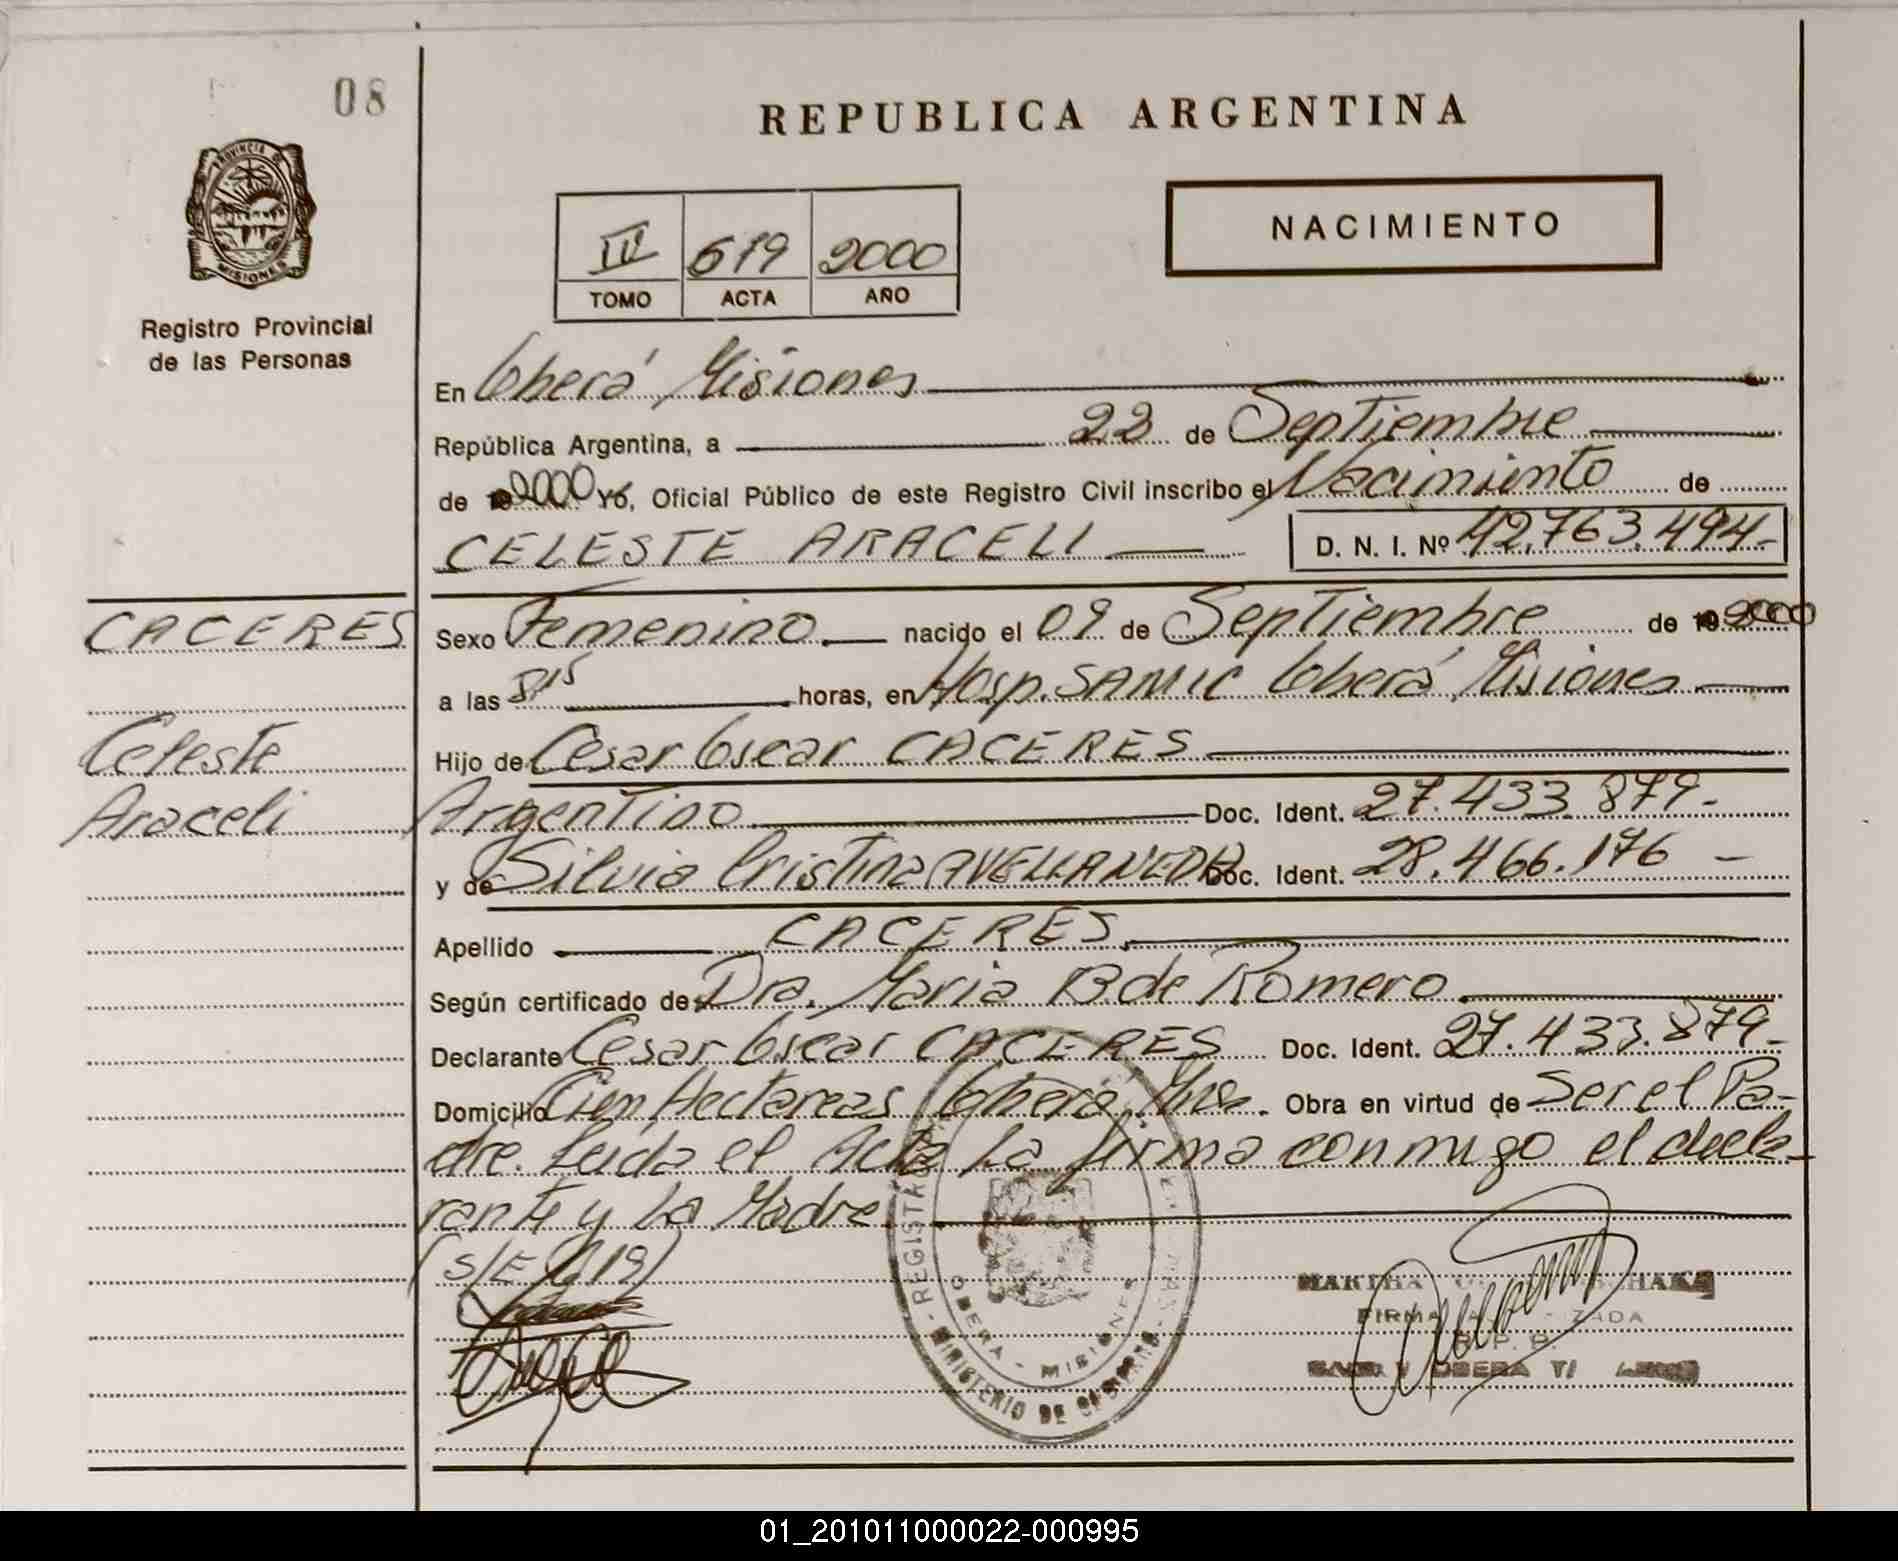 08
REPUBLICA ARGENTINA
PROVINCIA DE
MISIONES
Registro Provincial
de las Personas
NACIMIENTO
619 2000
TOMO ACTA AÑO
En Oberá Misiones
República Argentina, a 22 de Septiembre
de 2000 Yo, Oficial Público de este Registro Civil inscribo el Nacimiento de
CELESTE ARACELI D. N. I. Nº 42.763.494-
CACERES
Sexo Femenino nacido el 09 de Septiembre de 2000
a las 8,15 horas, en Hosp. SAMIC Oberá, Misiones
Celeste
Hijo de César Oscar CACERES
Araceli
Argentino Doc. Ident. 27.433.879-
y de Silvia Cristina AVELLANEDA Doc. Ident. 28.466.176 -
Apellido CACERES
Según certificado de Dra. María B de Romero
Declarante César Oscar CACERES Doc. Ident. 27.433.879-
Domicilio Cien Hectareas Oberá, Mnes. Obra en virtud de Ser el Pa-
dre. Leída el Acta La firma conmigo el decla-
rante y La Madre.
REGISTRO
OBERA - MISIONES
MINISTERIO DE GOBIERNO
MARTHA
FIRMA
OBERA
01_201011000022-000995